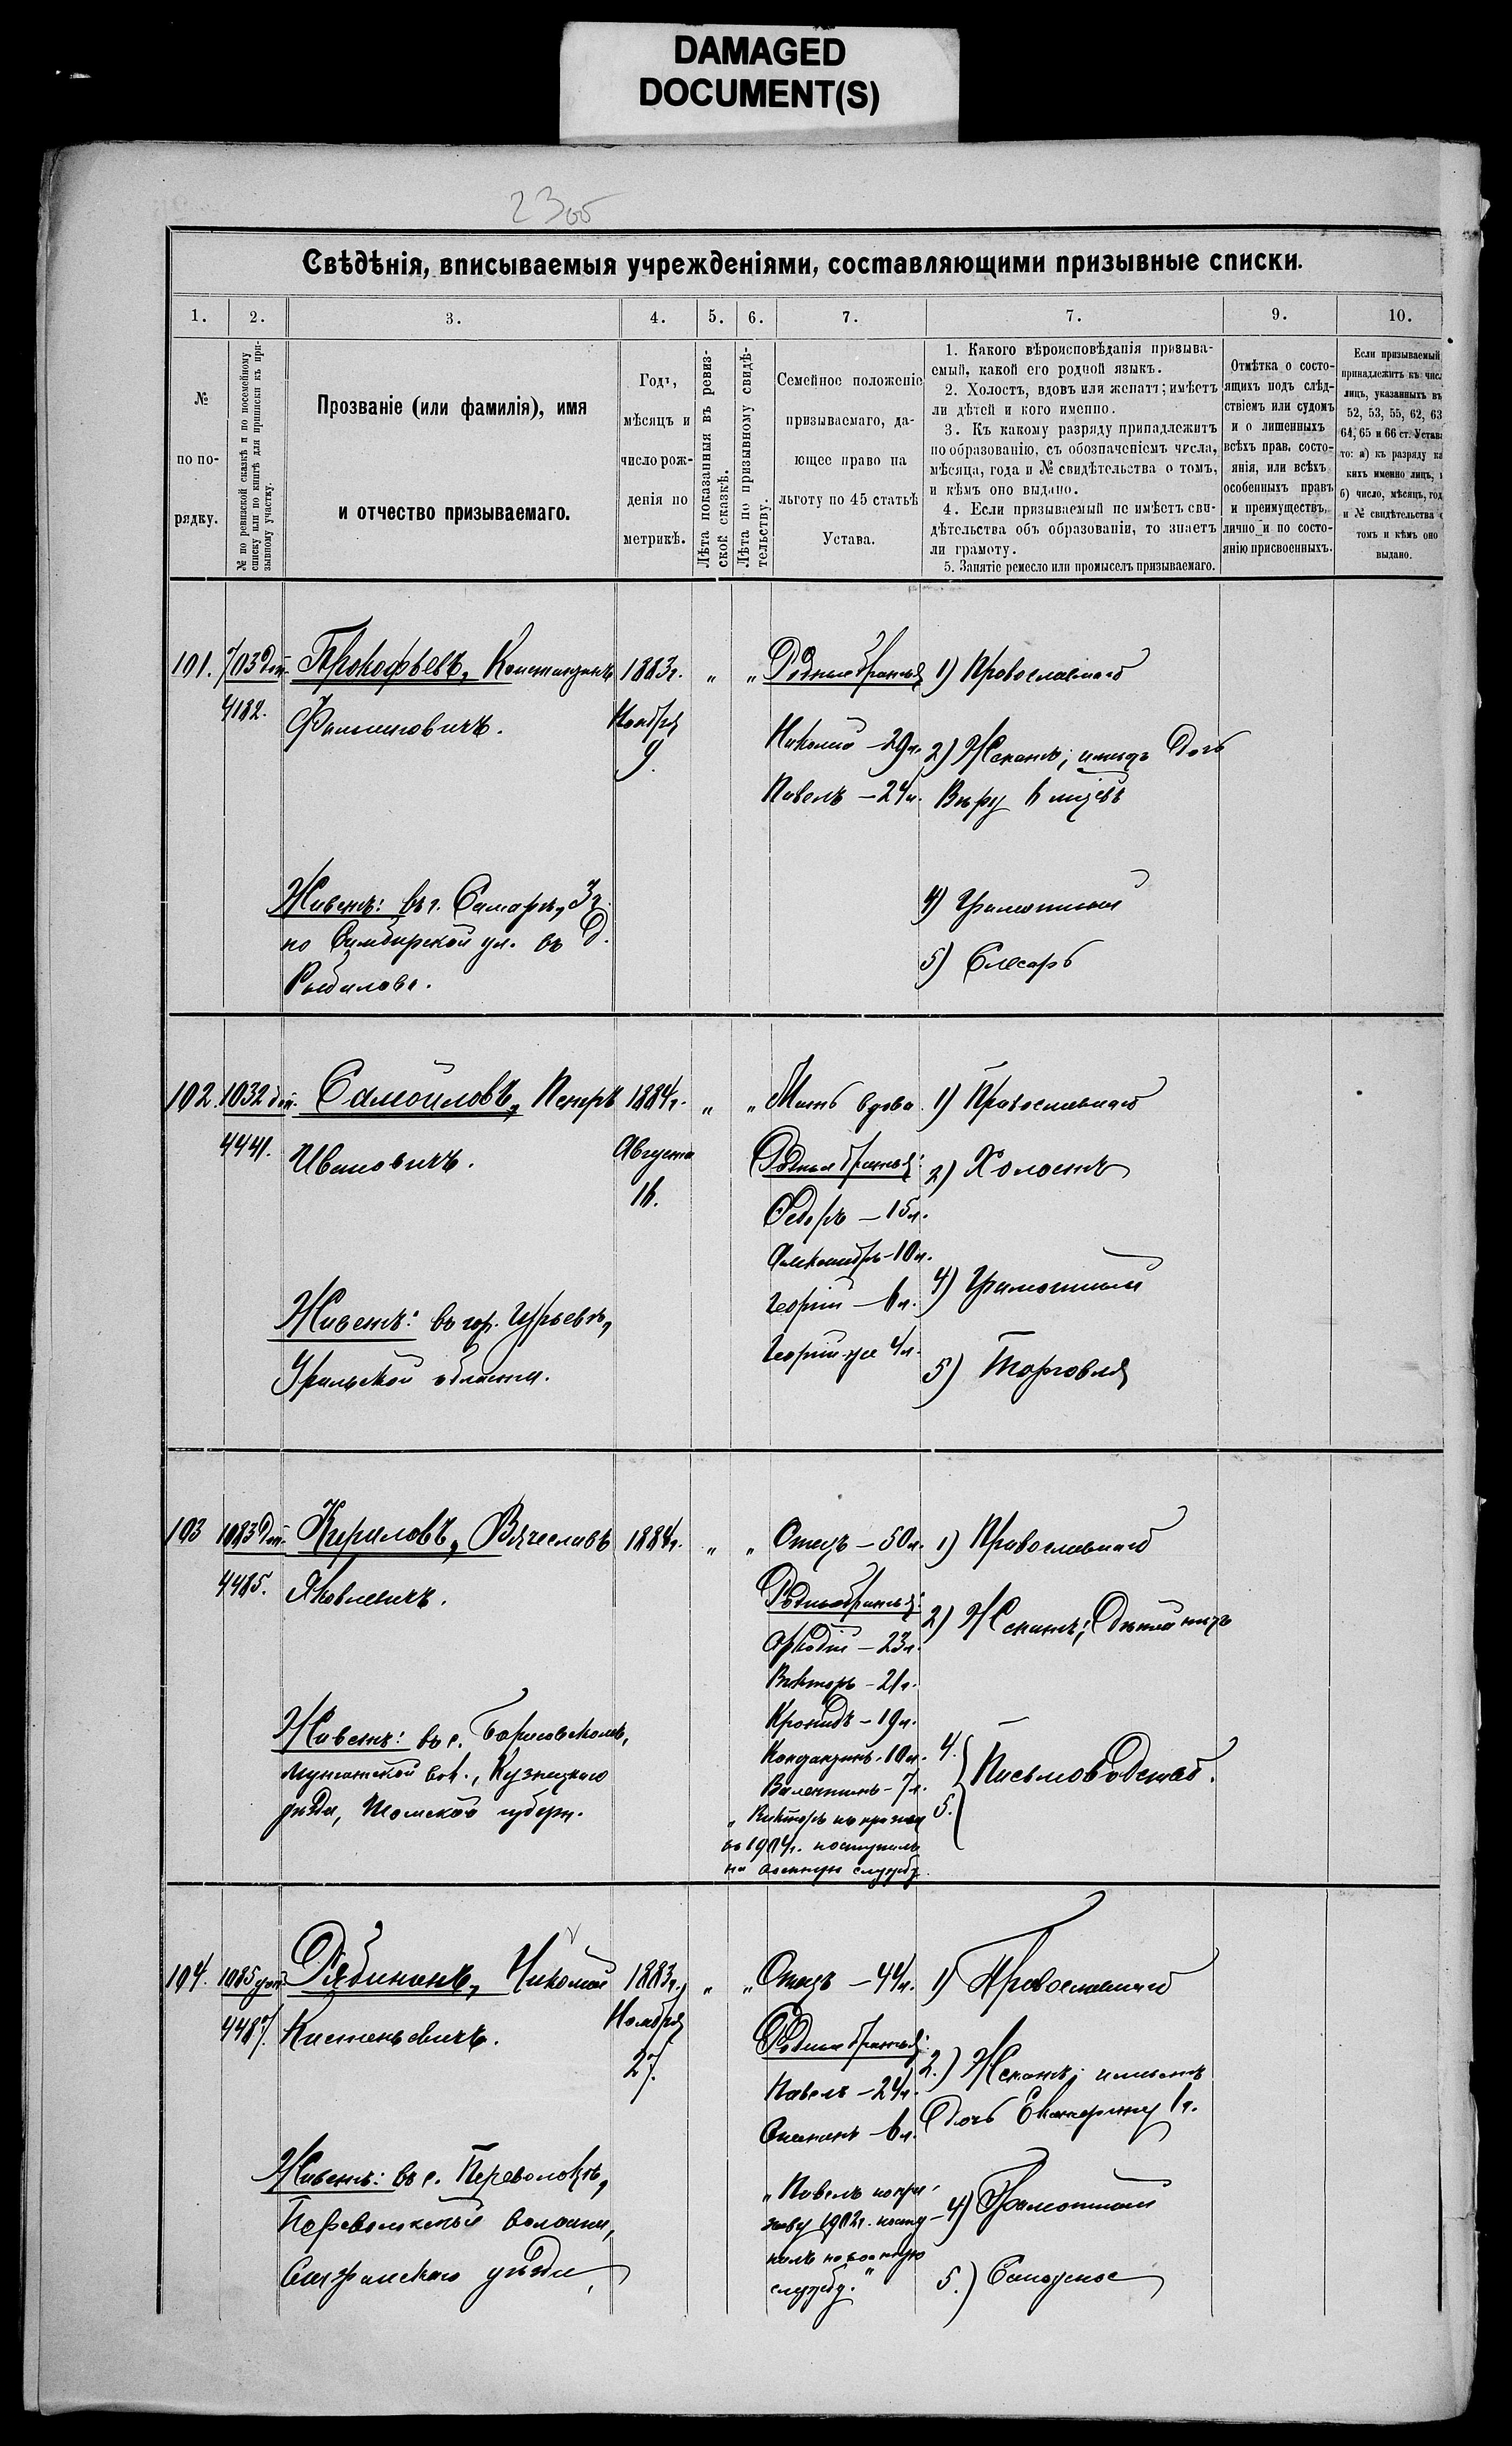 DAMAGED
DOCUMENT(S)
23об
Свѣдѣнія, вписываемыя учрежденіями, составляющими призывные списки.
1. 2. 3. 4. 5. 6. 7. 7. 9. 10.
№
по по-
рядку.
№ по ревизской сказкѣ и по посемейному
списку или по книгѣ для приписки къ при-
зывному участку.
Прозваніе (или фамилія), имя
и отчество призываемаго.
Годъ,
мѣсяцъ и
число рож-
денія по
метрикѣ.
Лѣта показанныя въ ревиз-
ской сказкѣ.
Лѣта по призывному свидѣ-
тельству.
Семейное положеніе
призываемаго, да-
ющее право на
льготу по 45 статьѣ
Устава.
1. Какого вѣроисповѣданія призыва-
емый, какой его родной языкъ.
2. Холостъ, вдовъ или женатъ; имѣетъ
ли дѣтей и кого именно.
3. Къ какому разряду принадлежитъ
по образованію, съ обозначеніемъ числа,
мѣсяца, года и № свидѣтельства о томъ,
и кѣмъ оно выдано.
4. Если призываемый не имѣетъ сви-
дѣтельства объ образованіи, то знаетъ
ли грамоту.
5. Занятіе ремесло или промыселъ призываемаго.
Отмѣтка о состо-
ящихъ подъ слѣд-
ствіемъ или судомъ
и о лишенныхъ
всѣхъ прав. состо-
янія, или всѣхъ
особенныхъ правъ
и преимуществъ,
лично и по состо-
янію присвоенныхъ.
Если призываемый
принадлежитъ къ числ
лицъ, указанныхъ въ
52, 53, 55, 62, 63
64, 65 и 66 ст. Устава
то: а) къ разряду ка
кихъ именно лицъ,
б) число, мѣсяцъ, год
и № свидѣтельства о
томъ и кѣмъ оно
выдано.
101. 703 доп. Прокофьевъ, Константинъ 1883г. " " Родные братья 1) Православнаго
4182. Филипповичъ. Ноября
9.
Николай – 29л. 2) Женатъ; имѣетъ дочь
Павелъ – 24л. Вѣру 6 мѣсяц.
Живетъ: въ г. Самарѣ, 3 ч. 4) Грамотный
по Симбирской ул. въ д.
5) Слесарь
102. 1032 доп. Самойловъ, Петръ 1884г. " " Мать вдова 1) Православнаго
4441. Ивановичъ. Августа
16.
Родные братья: 2) Холостъ
Федоръ – 15л.
Александръ – 10л.
Георгій – 6л. 4) Грамотный
Георгій-же 4л.
Живетъ: въ гор. Гурьевѣ,
Уральской области.
5) Торговля
103 1083 доп. Кириловъ, Вячеславъ 1884г. " " Отецъ – 50л. 1) Православнаго
4485. Яковлевичъ.
Родные братья: 2) Женатъ; дѣтей нѣтъ
Аркадій – 23л.
Викторъ – 21г.
Кронидъ – 19л.
Живетъ: въ с.
вол., Кузнецкаго
уѣзда, Томской губерн.
10л. 4.
Валентинъ – 7л. 5. Письмоводство.
" Викторъ по призыву
въ 1904г. поступилъ
на военную службу.
104. 1085 доп. Рябининъ, Николай 1883г. " " Отецъ – 44л. 1) Православнаго
4487. Ноября
27.
Родные братья: 2.) Женатъ; имѣетъ
Павелъ – 24л. дочь Екатерину 1г.
Степанъ – 6л.
Живетъ: въ с. Переволокѣ,
Переволокской волости,
Сызранскаго уѣзда
"Павелъ по при-
зыву 1902г. посту-
пилъ на военную
службу."
4) Грамотный
5.) Сапожное